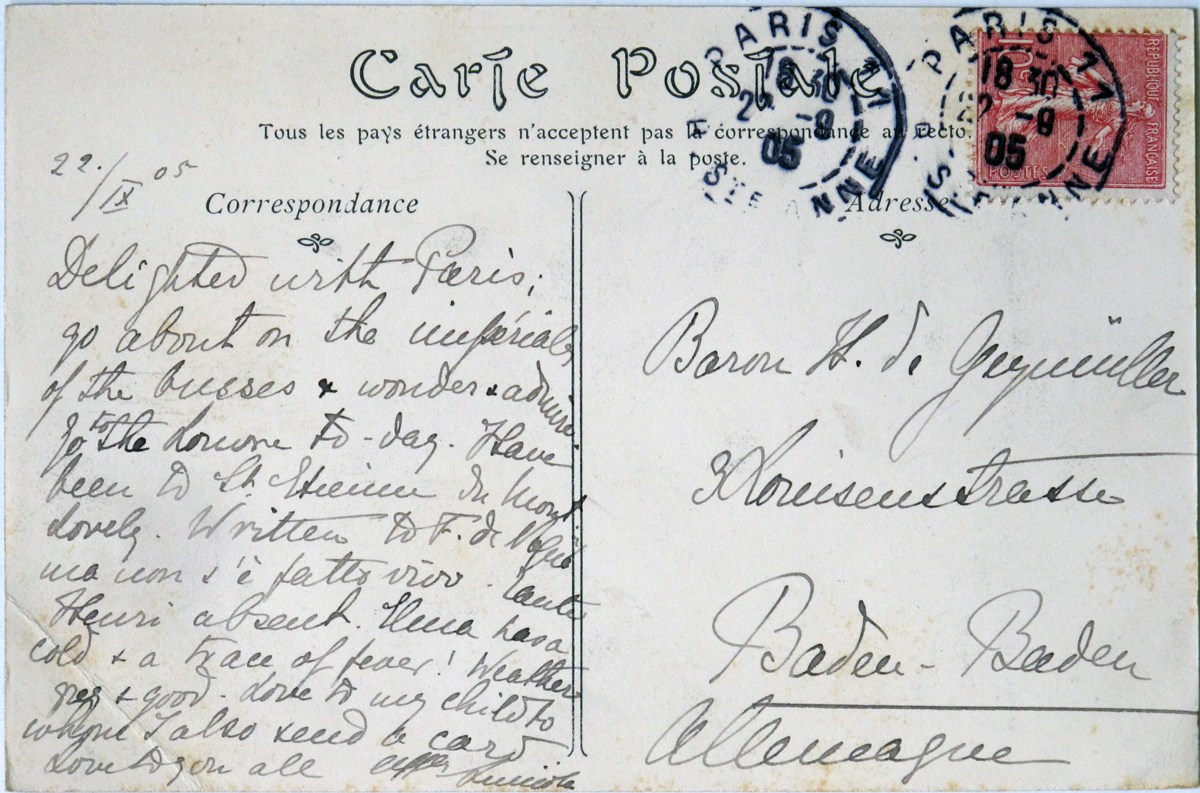 Carte Postale
Tous les pays étrangers n'acceptent pas la correspondance au recto.
Se renseigner à la poste.
PARIS 11
18 30
22 -9
05
STE ANNE
PARIS 11
18 30
22 -9
05
10c
REPUBLIQUE FRANÇAISE
POSTES
22./IX 05
Correspondance
Delighted with Paris;
go about on the impériales
of the busses & wonder & admire.
Go to the Louvre to-day. Have
been to St. Etienne du Mont
Lovely. Written to F. de
ma non s'è fatto vivo.
Henri absent. Elma has a
cold & a trace of fever! Weather
grey & good. Love to my child to
whom I also send a card
Love to you all
Adresse
Baron H. de Geymüller
3 Louisenstrasse
Baden-Baden
Allemagne